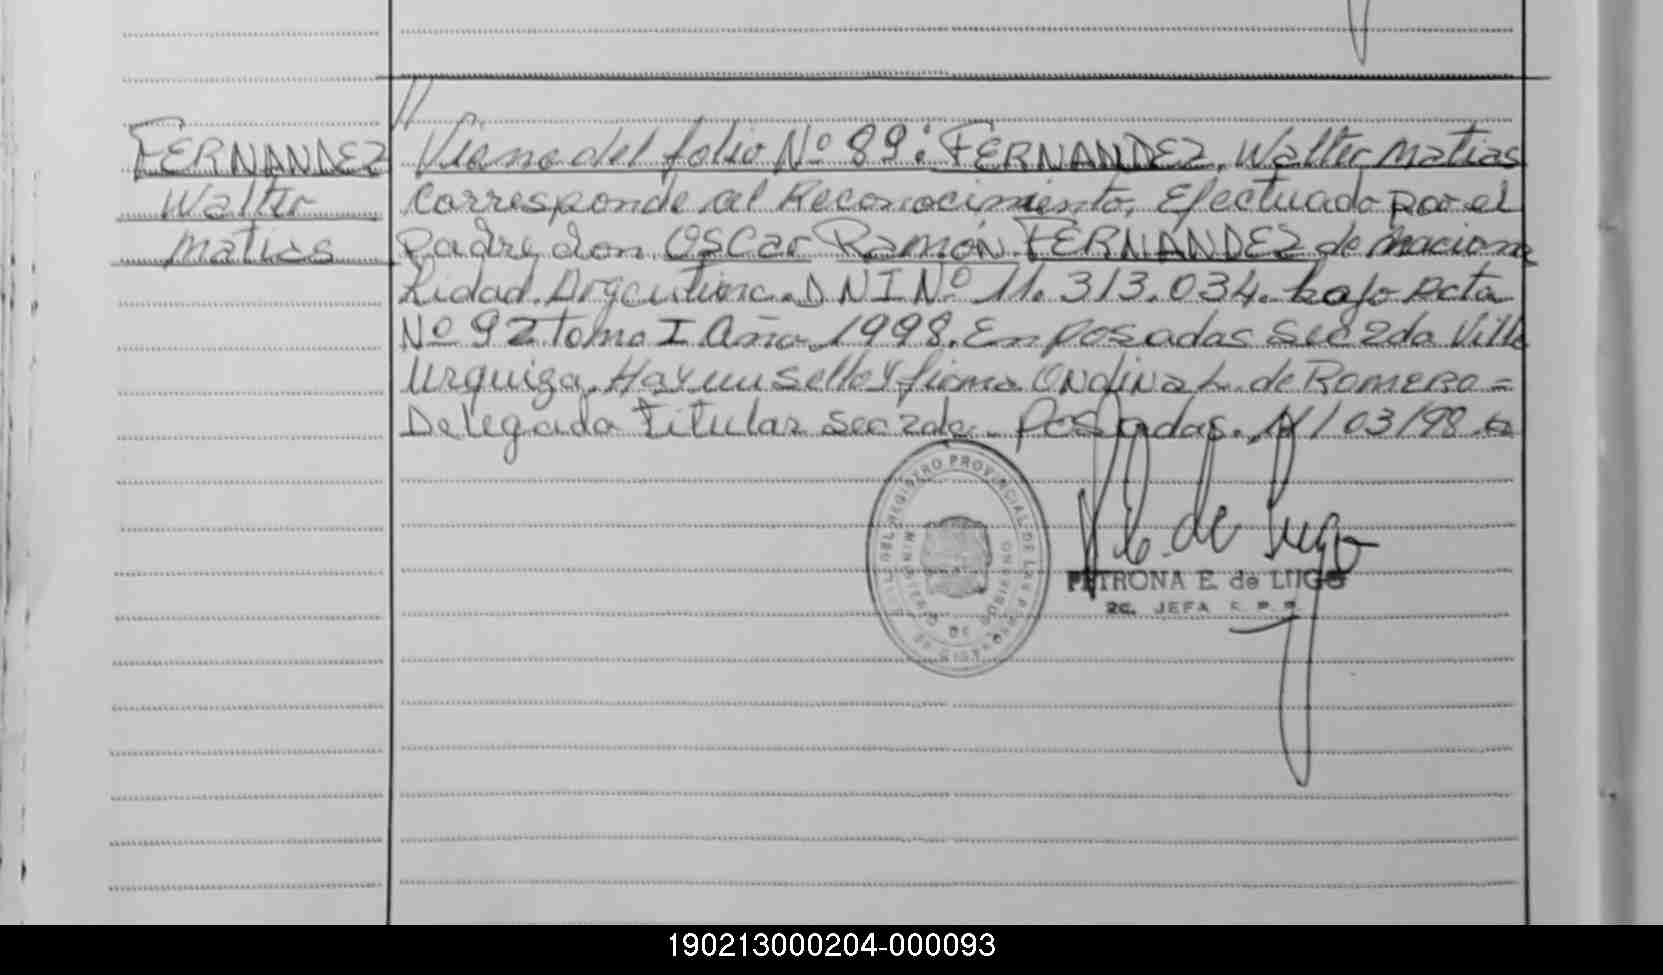 FERNANDEZ
Walter
Matias
// Viene del folio Nº 89: FERNANDEZ, Walter Matias
Corresponde al Reconocimiento, Efectuado por el
Padre don Oscar Ramón FERNANDEZ de Naciona
lidad Argentina. DNI Nº 11.313.034. bajo Acta
Nº 92 tomo I Año 1998. En Posadas Sec 2da Villa
Urquiza. Hay un sello y firma Ondina L. de Romero =
Delegada titular Sec 2da. Posadas. /03/98.
REGISTRO PROVINCIAL DE LAS PERSONAS
MINISTERIO DE GOBIERNO
PETRONA E. de LUGO
2a. JEFA R. P. P.
190213000204-000093